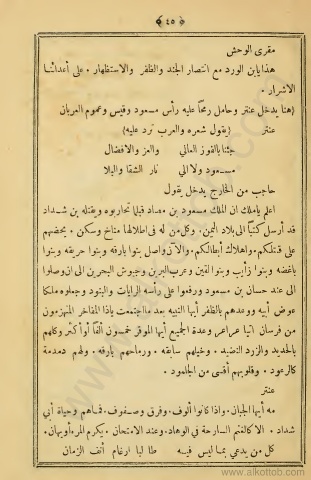 ﴿ ٤٥ ﴾
مقرى الوحش
هذا يابن الورد مع انتصار الجند والظفر والاستظهار . على أعدائنا
الاشرار .
(هنا يدخل عنتر وحامل رمحًا عليه رأس مسعود وقيس وعموم العربان
عنتر (يقول شعره والعرب ترد عليه)
جئنا بالفوز العالي والعز والافضال
مسعود ولا الي نار الشقا والبلا
حاجب من الخارج يدخل يقول
اعلم ياملك ان الملك مسعود بن مصاد قبلما تحاربوه ويقتله بن شداد
قد أرسل كتبًا الى بلاد اليمن . وكل من له في اطلالها مناخ وسكن . يحضهم
على قتلكم . واهلاك أبطالكم . والآن واصل بنوا بارقه وبنوا حريقه وبنوا
باغضه وبنوا زأيب وبنوا القين وعرب البرين وجيوش البحرين الى ان وصلوا
الى عند حسان بن مسعود ورفعوا على رأسه الرايات والبنود وجعلوه ملكا
عوض أبيه ووعدهم بالظفر أيها النبيه بعد ما اجتمعت ياذا المفاخر المنهزمون
من فرسان اتيا عراعر وعدة الجميع أيها الموقر خمسون ألفًا أو أكثر وكلهم
بالحديد والزرد النضيد . وخيلهم سابقه . ورماحهم بارقه . ولهم دمدمة
كالرعود . وقلوبهم أقسى من الجلمود .
عنتر
مه أيها الجبان . واذا كانوا ألوف . وفرق وصفوف . فماهم وحياة أبي
شداد . الا كالغنم السارحة في الوهاد . وعند الامتحان . يكرم المرء أو يهان .
كل من يدعي بما ليس فيه طالما ارغام أنف الزمان
www.alkottob.com